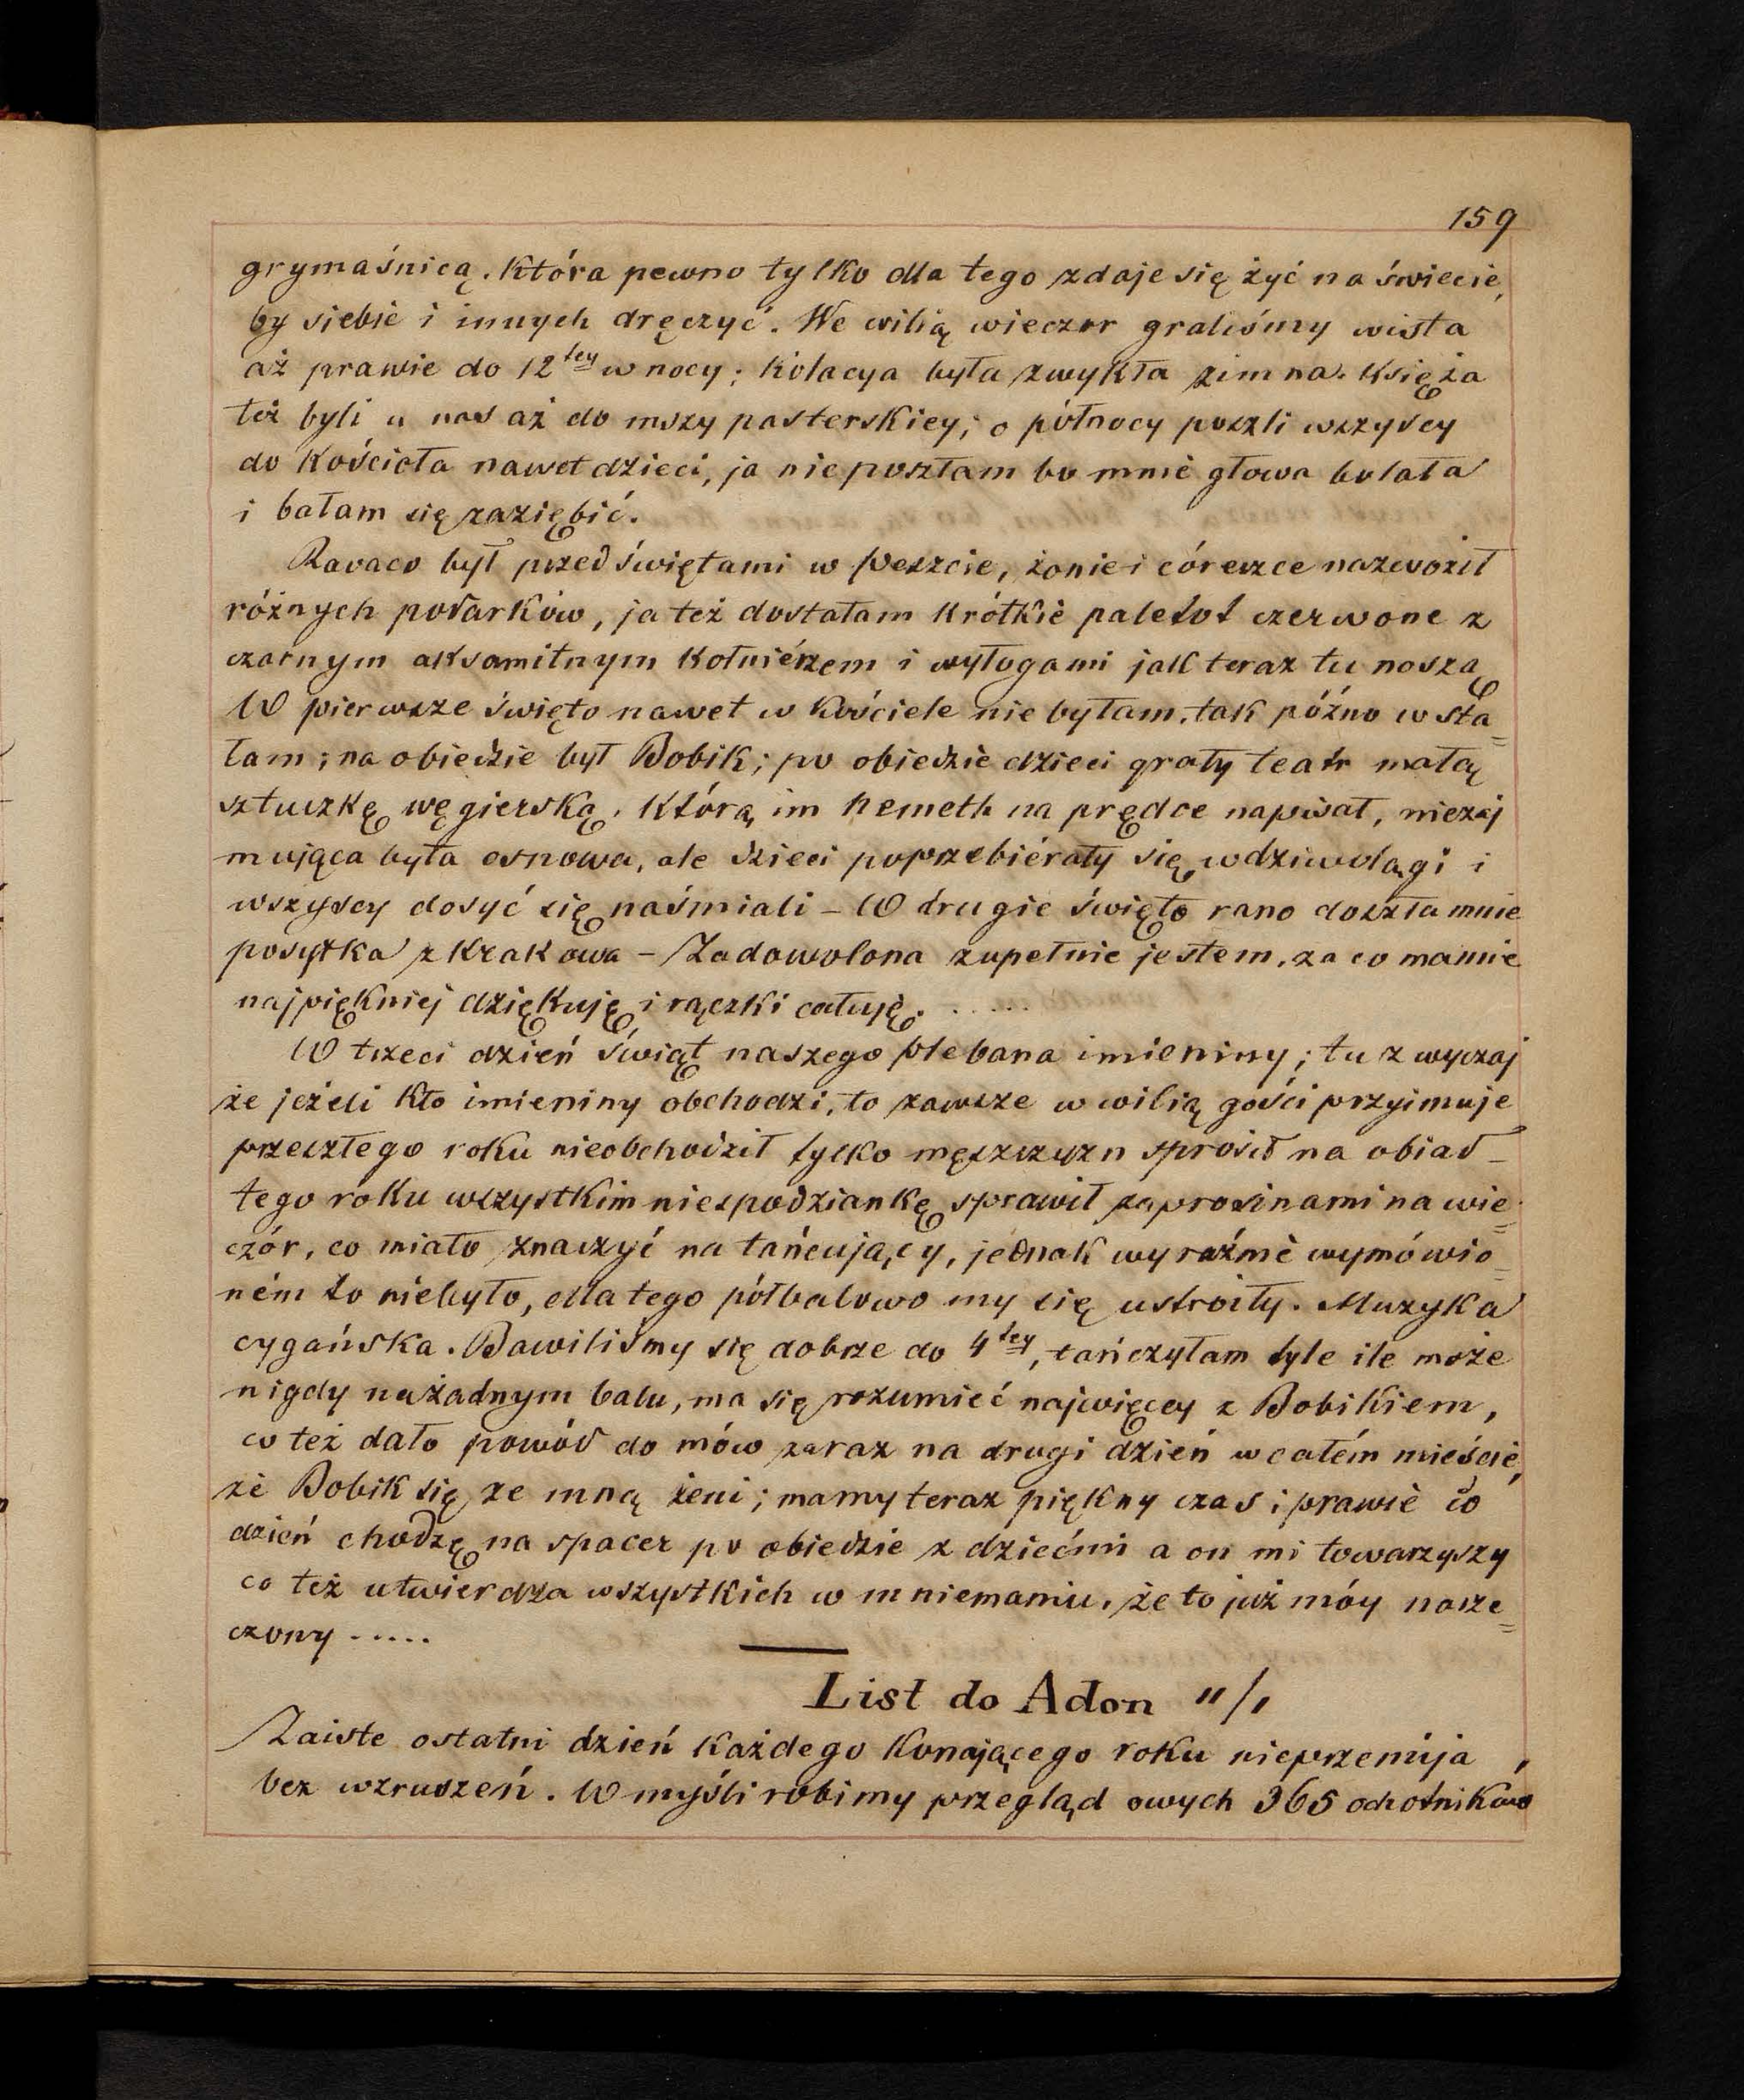 159
grymaśnicą, która pewno tylko dla tego zdaje się żyć na świecie,
by siebie i innych dręczyć. We wilią wieczor graliśmy wista
aż prawie do 12tey w nocy; kolacya była zwykła zimna. Księża
też byli u nas aż do mszy pasterskiey; o północy poszli wszyscy
do Kościoła nawet dzieci, ja nie poszłam bo mnie głowa bolała
i bałam się zaziębić.
Ravaco był przed świętami w Peszcie, żonie i córeszce nazwoził
różnych podarków, ja też dostałam krótkie paletot czerwone z
czarnym aksamitnym kołniérzem i wyłogami jak teraz tu noszą
W pierwsze święto nawet w Kościele nie byłam, tak późno wsta=
łam; na obiedzie był Bobik; po obiedzie dzieci grały teatr małą
sztuczkę węgierską, którą im Nemeth na prędce napisał, niezaj
mująca była osnowa, ale dzieci poprzebiérały się w dziwolągi i
wszyscy dosyć się naśmiali – W drugie święto rano doszła mnie
posyłka z Krakowa – Zadowolona zupełnie jestem, za co mamie
najpiękniej dziękuję i rączki całuję. .....
W trzeci dzień świąt naszego plebana imieniny; tu zwyczaj
że jeżeli kto imieniny obchodzi, to zawsze w wilią gości przyimuje
przeszłego roku nieobchodził tylko męszczyzn sprosił na obiad –
tego roku wszystkim niespodziankę sprawił zaprosinami na wie=
czór, co miało znaczyć na tańcujący, jednak wyraźnie wymówio=
ném to niebyło, dla tego półbalowo my się ustroiły. Muzyka
cygańska. Bawiliśmy się dobrze do 4tey, tańczyłam tyle ile może
nigdy na żadnym balu, ma się rozumieć najwięcey z Bobikiem,
co też dało powód do mów zaraz na drugi dzień w całém mieście,
że Bobik się ze mną żeni; mamy teraz piękny czas i prawie co
dzień chodzę na spacer po obiedzie z dziećmi a on mi towarzyszy
co też utwierdza wszystkich w mniemaniu, że to już móy narze=
czony .....
List do Adon "/,
Zaiste ostatni dzień każdego konającego roku nieprzemija,
bez wzruszeń. W myśli robimy przegląd owych 365 ochotników